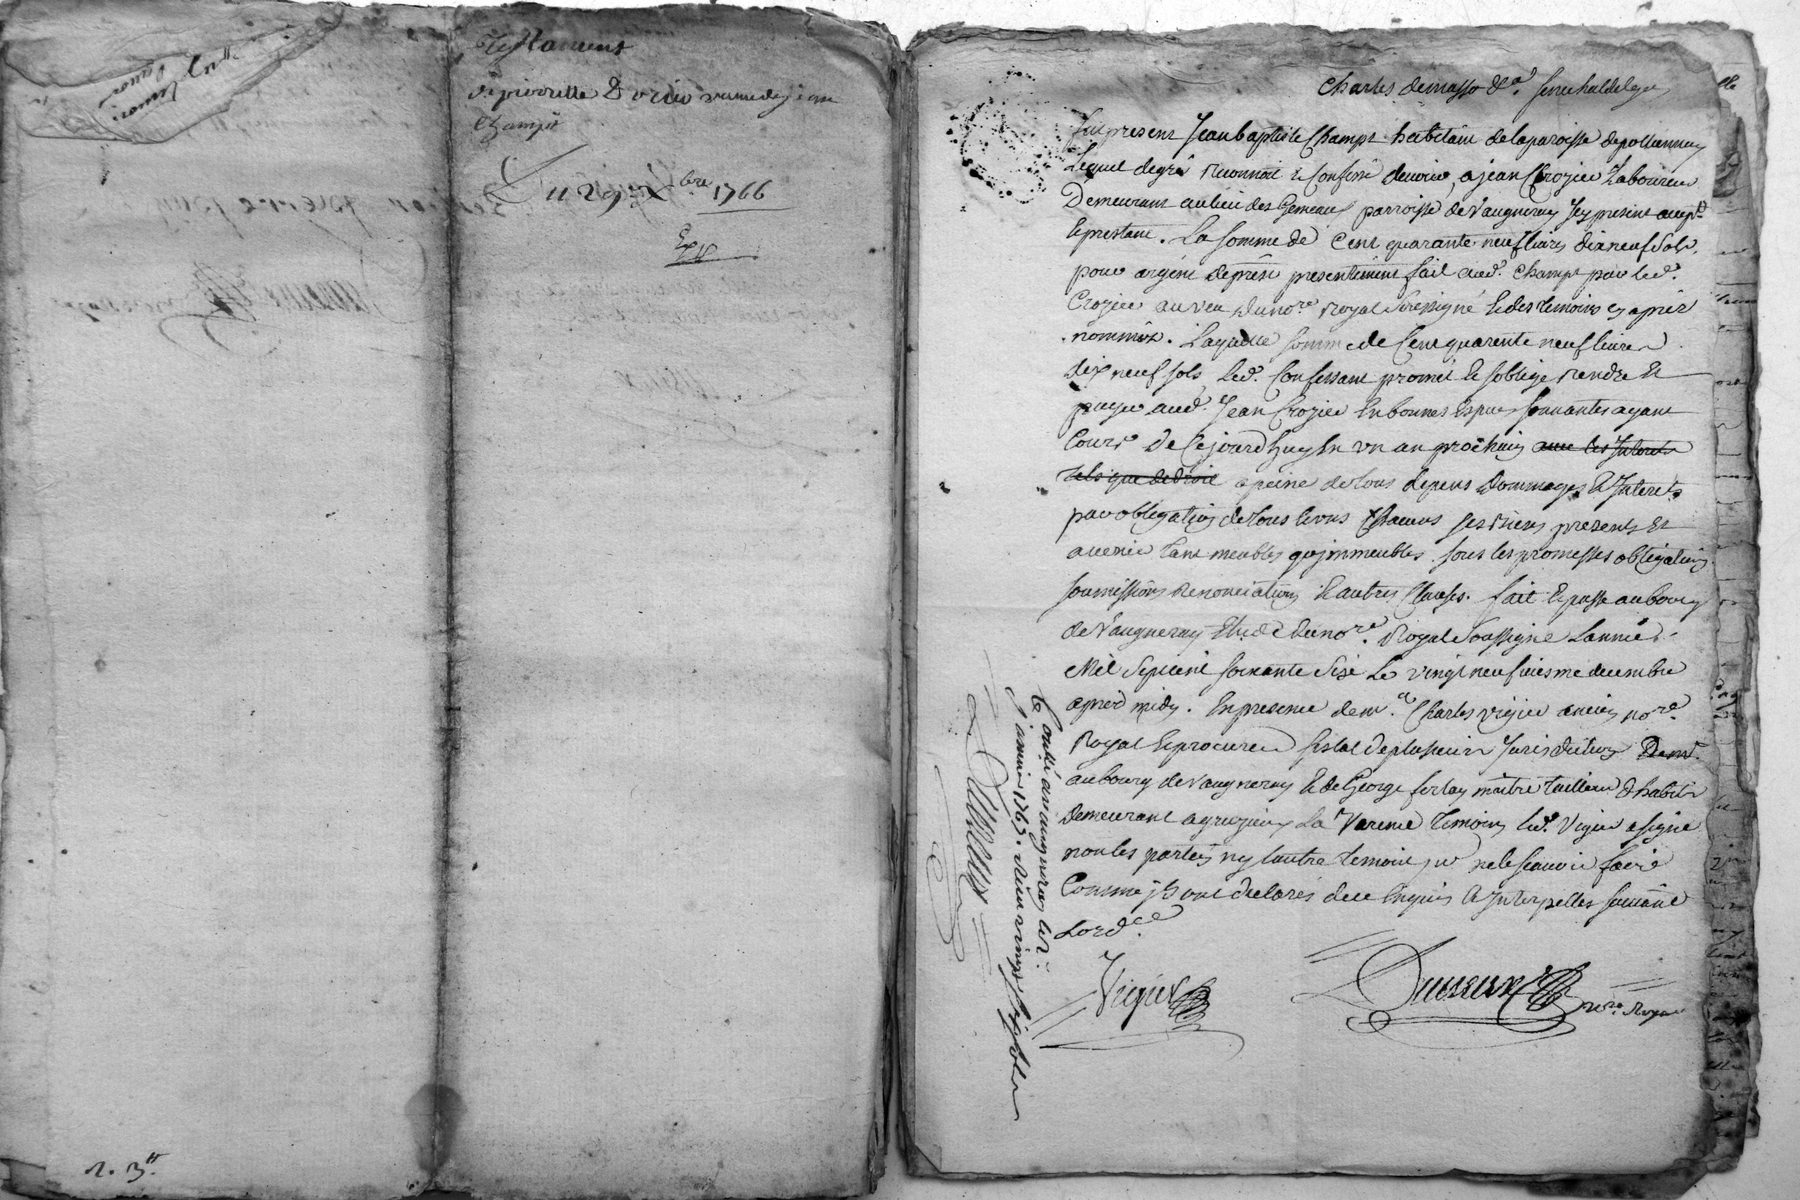 Testament
de pierrette
Champt
Du 29e Xbre 1766
Exp
2. 3tt
Charles demasso Sr. senechal de lyon
fut present Jean baptiste Champt habitant de la paroisse de pollionnay
Lequel de gré reconnoit & Confesse devoir a jean Crozier Laboureur
Demeurant au lieu des Gemeaux parroisse de Vaugneray Jcy present accept.
& prestant. La somme de Cent quarante neuf livres dix neuf sols
pour argent de prest presentement fait aud. Champt par led.
Crozier au veu du no.re royal soussigné & des temoins cy apres
nomméz. Laquelle somme de Cent quarente neuf livres
dix neuf sols led. Confessant promet & soblige rendre &
payer aud. Jean Crozier En bonnes Espèces sonnantes ayant
Cours de Cejourdhuy En un an prochain avec les Interets
tels que de droit a peine de tous depens Dommages & Interets
par obligation de tous & Chacuns ses biens presents et
avenir tant meubles qujmmeubles. sous les promesses obligations
soumissions renonciations & autres Clauses. fait & passe au bourg
de Vaugneray Etude du no.re Royal Soussigné Lannée
Mil Septcent soixante Six Le vingt neufviesme decembre
apres midy. En presence de m.e Charles vigier ancien no.re
Royal & procureur fiscal de plusieurs Jurisdictions Dem.t
au bourg de Vaugneray & de George ferlay maitre tailleur dhabits
demeurant a grezieux La Varenne temoins led. Vigier a signé
non les parties ny lautre temoin pr ne le scavoir faire
Comme jls ont declarés de ce Enquis & Jnterpellés suivant
Lord.ce
Vigier
no.re Royal
Controllé a vaugneray le 1er.
janvier 1767. reçu vingt six sols